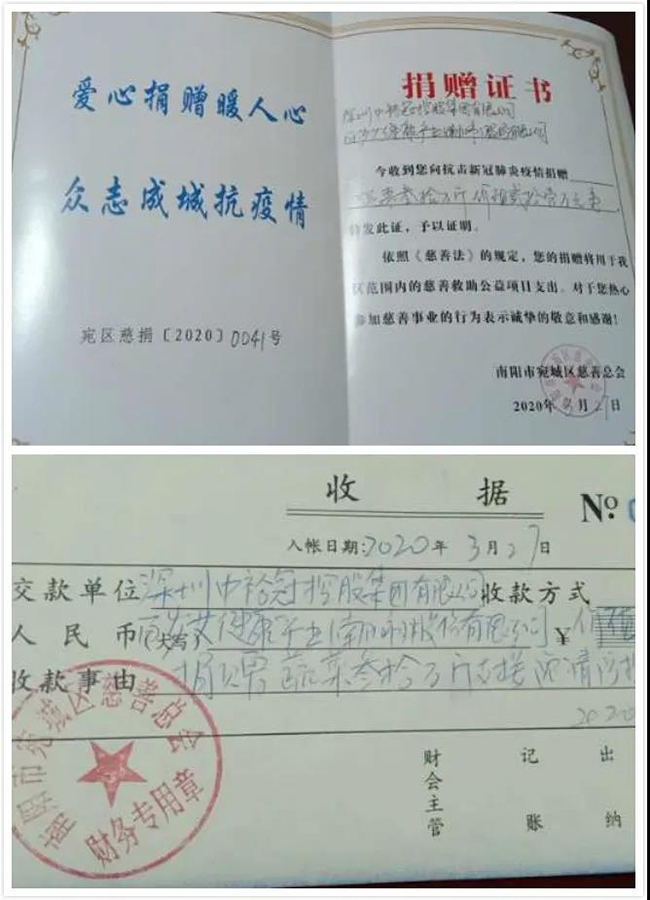 爱心捐赠暖人心
众志成城抗疫情
宛区慈捐〔2020〕0041号
捐赠证书
深圳中裕冠控股集团有限公司
今收到您向抗击新冠肺炎疫情捐赠
特发此证，予以证明。
依照《慈善法》的规定，您的捐赠将用于我
区范围内的慈善救助公益项目支出。对于您热心
参加慈善事业的行为表示诚挚的敬意和感谢！
南阳市宛城区慈善总会
2020年3月27日
收 据
No.
入帐日期:2020年3月27日
交款单位深圳中裕冠控股集团有限公司收款方式
人民币(大写) ¥
收款事由捐赠蔬菜叁拾万斤支援
2020
财会主管 记账 出纳
南阳市宛城区慈善总会
财务专用章